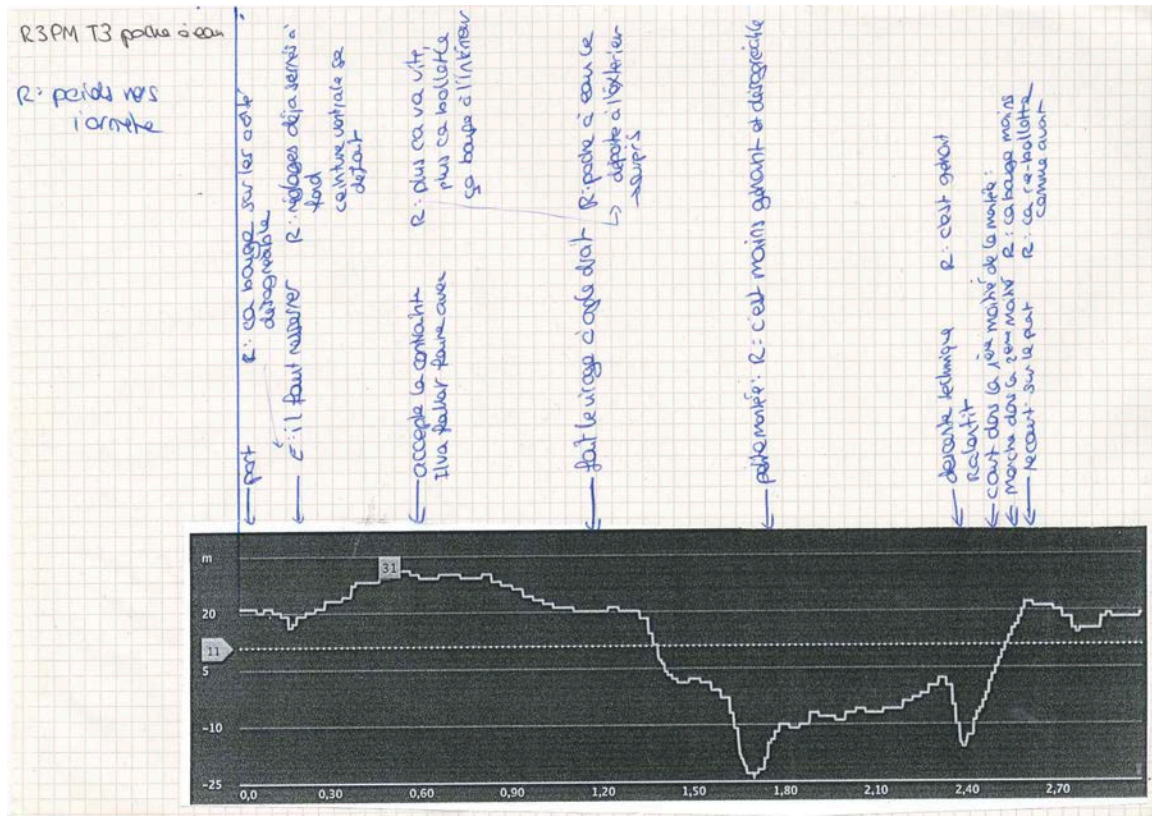 R3PM T3 poche à eau
R: poids vers
l'arrière
part
R: ça bouge sur les côté
désagréable
E: il faut resserrer
R: réglages déjà serrés à
fond
ceinture ventrale se
défait
accepte la contrainte
Il va falloir faire avec
R: plus ça va vite,
plus ça ballotte
ça bouge à l'intérieur
fait le virage à angle droit
R: poche à eau se
déporte à l'extérieur
→ surpris
petite montée: R: c'est moins gênant et désagréable
descente technique
Ralentit
R: c'est gênant
court dans la 1ère moitié de la montée:
marche dans la 2ème moitié R: ça bouge moins
recourt sur le plat R: ça re-ballotte
comme avant
m
31
20
11
5
-10
-25
0,0 0,30 0,60 0,90 1,20 1,50 1,80 2,10 2,40 2,70